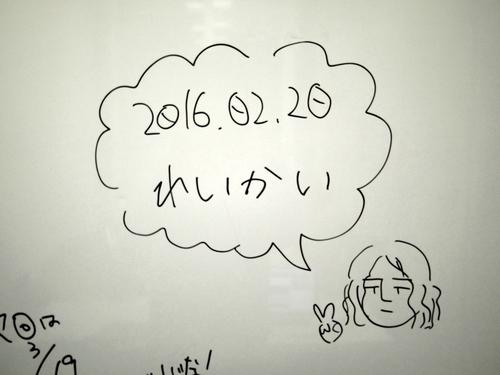 2016.02.20
れいかい
3/19